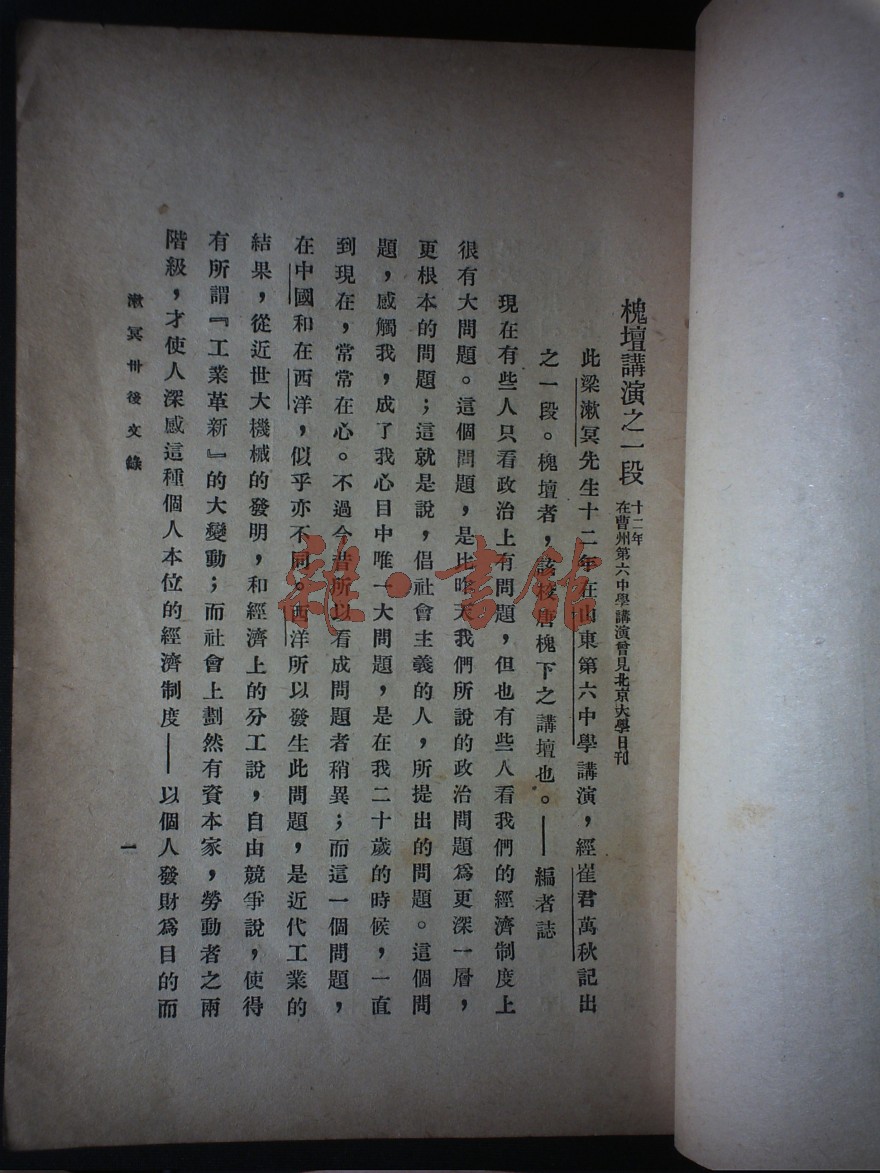 槐壇講演之一段
十二年
在曹州第六中學講演曾見北京大學日刊
此梁漱冥先生十二年在山東第六中學講演，經崔君萬秋記出
之一段。槐壇者，該校唐槐下之講壇也。——編者誌
現在有些人只看政治上有問題，但也有些人看我們的經濟制度上
很有大問題。這個問題，是比昨天我們所說的政治問題爲更深一層，
更根本的問題；這就是說，倡社會主義的人，所提出的問題。這個問
題，感觸我，成了我心目中唯一大問題，是在我二十歲的時候，一直
到現在，常常在心。不過今昔所以看成問題者稍異；而這一個問題，
在中國和在西洋，似乎亦不同。西洋所以發生此問題，是近代工業的
結果，從近世大機械的發明，和經濟上的分工說，自由競爭說，使得
有所謂『工業革新』的大變動；而社會上劃然有資本家，勞動者之兩
階級，才使人深感這種個人本位的經濟制度——以個人發財爲目的而
漱冥卅後文錄
一
雜·書館